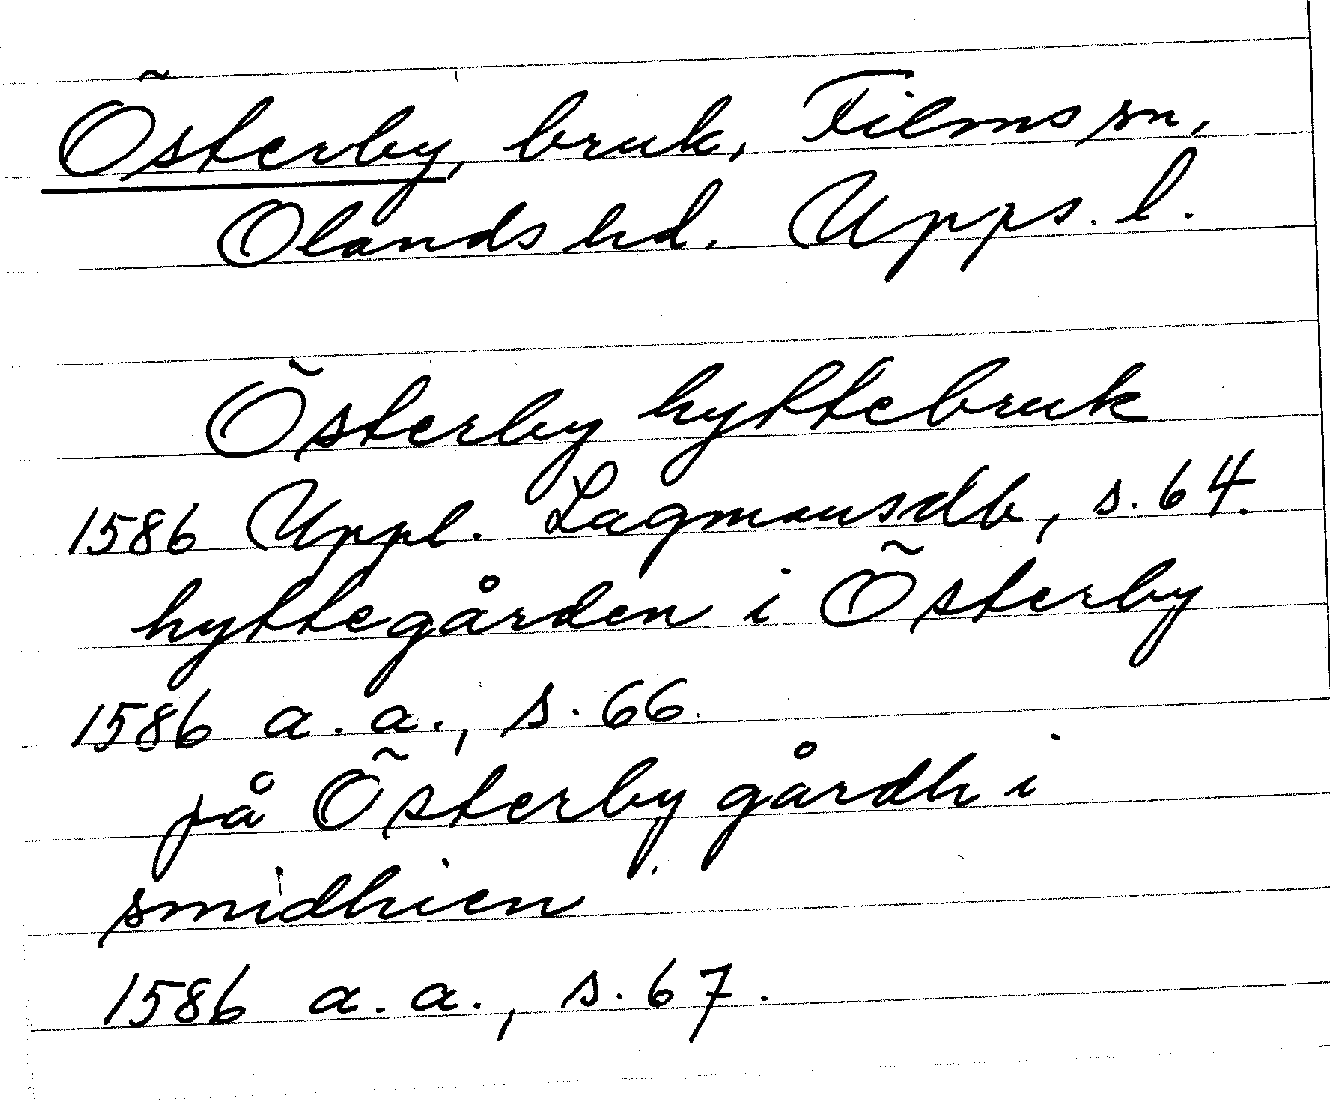 Österby, bruk, Films sn,
Olands hd. Upps. l.
Österby hyttebruk
1586 Uppl. Lagmansdb, s. 64.
hyttegården i Österby
1586 a. a., s. 66.
på Österby gårdh i
smidhien
1586 a. a., s. 67.